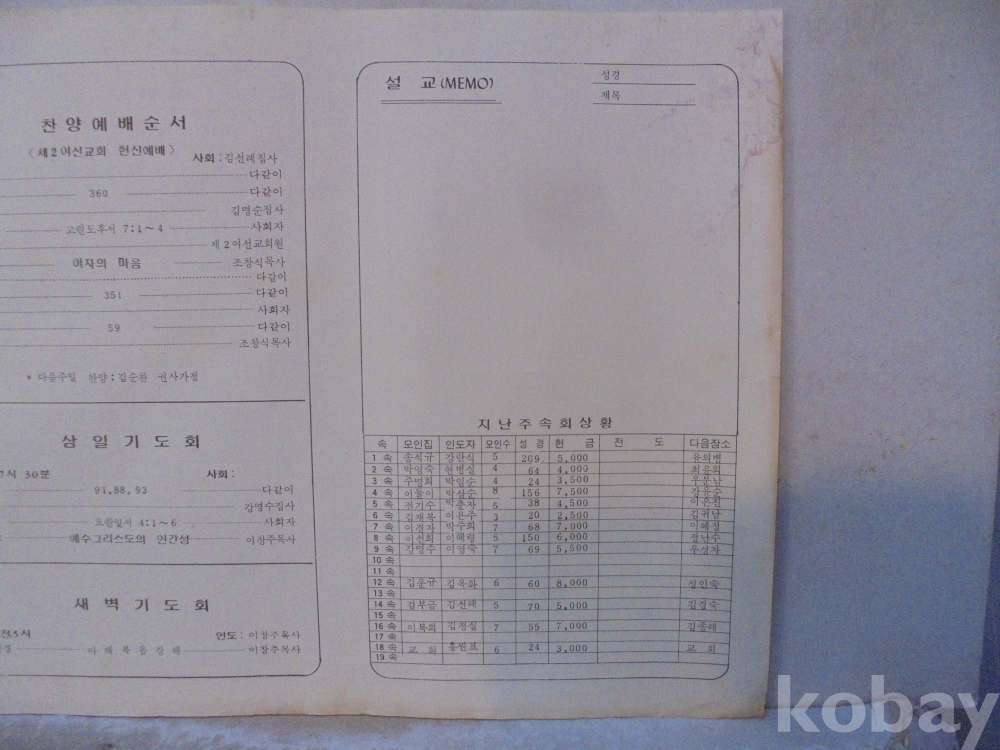 찬양예배순서
〈제2여선교회 헌신예배〉
사회 : 김선례집사
다같이
360 다같이
김명순집사
고린도후서 7:1~4 사회자
제2여선교회원
여자의 마음 조창식목사
다같이
351 다같이
사회자
59 다같이
조창식목사
* 다음주일 찬양 ; 김순찬 권사가정
삼일기도회
7시 30분 사회 :
91,88,93 다같이
강명수집사
요한일서 4:1~6 사회자
예수그리스도의 인간성 이창주목사
새벽기도회
전5시 인도 : 이창주목사
마태복음강해 이창주목사
설 교 (MEMO)
성경
제목
지난주속회상황
속 모인집 인도자 모인수 성경 헌금 전도 다음장소
1 속 송석규 강란식 5 209 5,000
2 속 박영숙 현병실 4 64 4,000 최윤희
3 속 주명희 박임순 4 24 3,500
4 속 박상순 8 156 7,500
5 속 전기수 박춘자 5 38 4,500
6 속 김재복 이은주 3 20 2,500 김귀남
7 속 이경자 박주희 7 68 7,000 이혜정
8 속 이선희 이혜령 5 150 6,000 정난수
9 속 강명수 이영숙 7 69 5,500
10 속
11 속
12 속 김운규 김옥화 6 60 8,000 성인숙
13 속
14 속 김부금 김선례 5 70 5,000 김점숙
15 속
16 속 이복희 김정실 7 55 7,000 김종례
17 속
18 속 교회 홍원표 6 24 3,000 교회
19 속
kobay